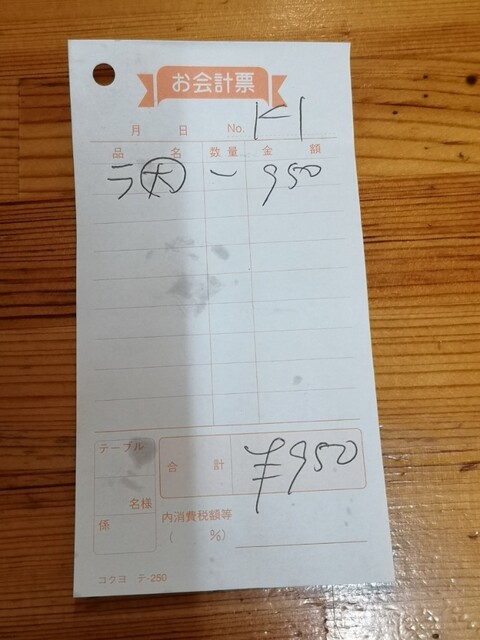 お会計票
月 日 No. K-1
品 名 数量 金 額
ラ大 一 950
テーブル
名様
係
合 計 ¥950
内消費税額等
( %)
コクヨ テ-250